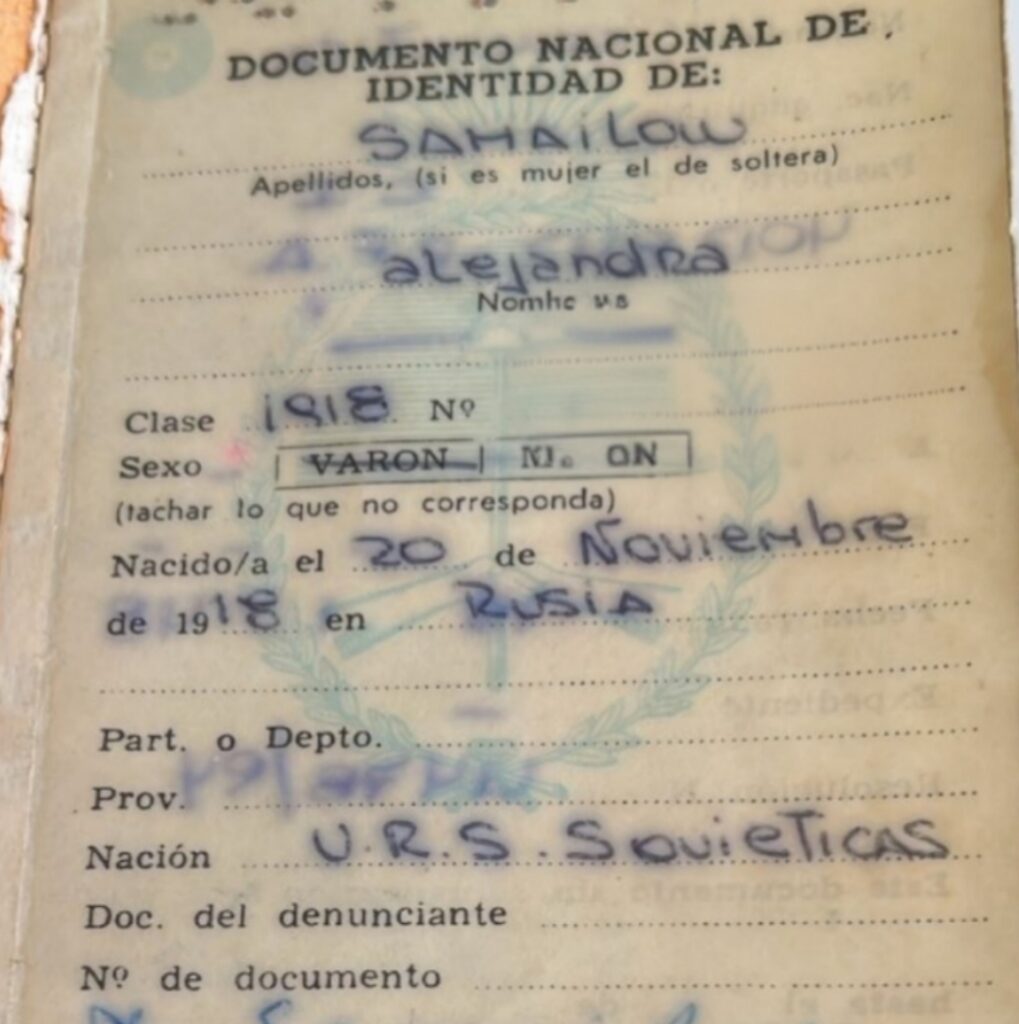 DOCUMENTO NACIONAL DE
IDENTIDAD DE:
SAMAILOW
Apellidos, (si es mujer el de soltera)
aLejandRa
Clase 1918 Nº
Sexo VARON
(tachar lo que no corresponda)
Nacido/a el 20 de Noviembre
de 1918 en RUSIA
Part. o Depto.
Prov.
Nación U.R.S. SovieTICAS
Doc. del denunciante
Nº de documento